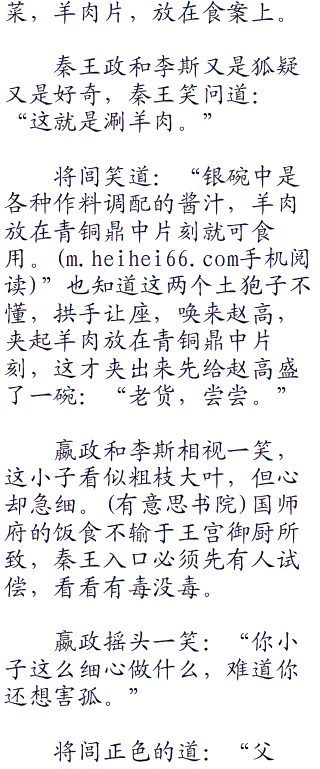 菜，羊肉片，放在食案上。
秦王政和李斯又是狐疑
又是好奇，秦王笑问道：
“这就是涮羊肉。”
将闾笑道：“银碗中是
各种作料调配的酱汁，羊肉
放在青铜鼎中片刻就可食
用。(m.heihei66.com手机阅
读)”也知道这两个土狍子不
懂，拱手让座，唤来赵高，
夹起羊肉放在青铜鼎中片
刻，这才夹出来先给赵高盛
了一碗：“老货，尝尝。”
嬴政和李斯相视一笑，
这小子看似粗枝大叶，但心
却急细。(有意思书院)国师
府的饭食不输于王宫御厨所
致，秦王入口必须先有人试
偿，看看有毒没毒。
嬴政摇头一笑：“你小
子这么细心做什么，难道你
还想害孤。”
将闾正色的道：“父